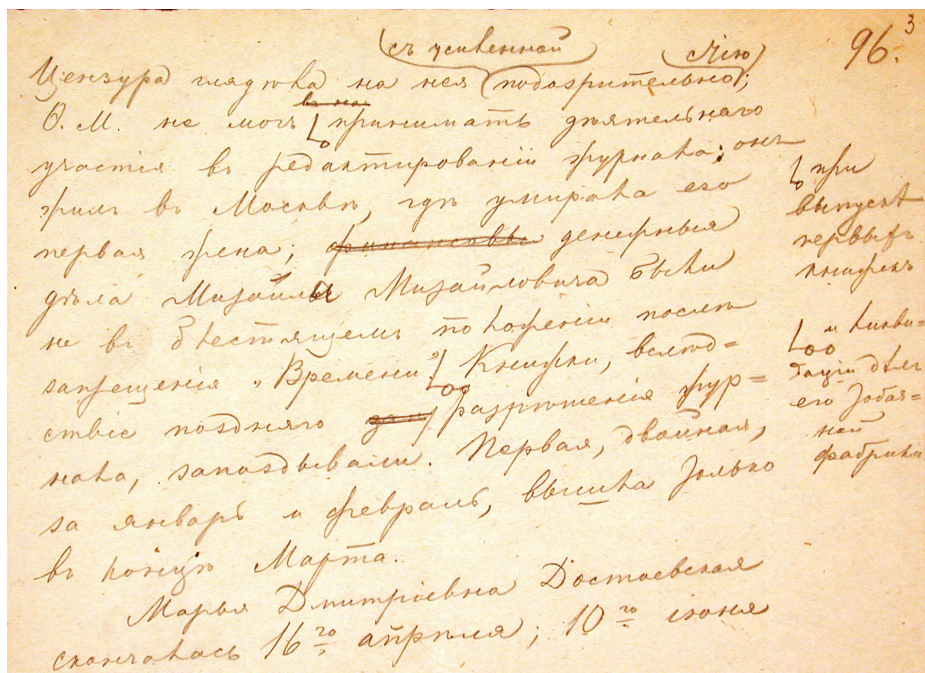 96. 3
съ усиленной
стію
Цензура глядѣла на нея подозрительно;
Ѳ. М. не могъ принимать дѣятельнаго
участія въ редактированіи журнала: онъ
жилъ въ Москвѣ, гдѣ умирала его
первая жена; финансовыя денежныя
дѣла Михайлы Михайловича были
не въ блестящемъ положеніи послѣ
запрещенія „Времени“. Книжки, вслѣд=
ствіе поздняго разрѣшенія жур=
нала, запаздывали. Первая, двойная,
за январь и февраль, вышла только
въ концѣ Марта.
Марья Дмитріевна Достоевская
скончалась 16го апрѣля; 10го іюня
при
выпускѣ
первыхъ
книжекъ
и ликви=
даціи дѣлъ
его табач=
ной
фабрики